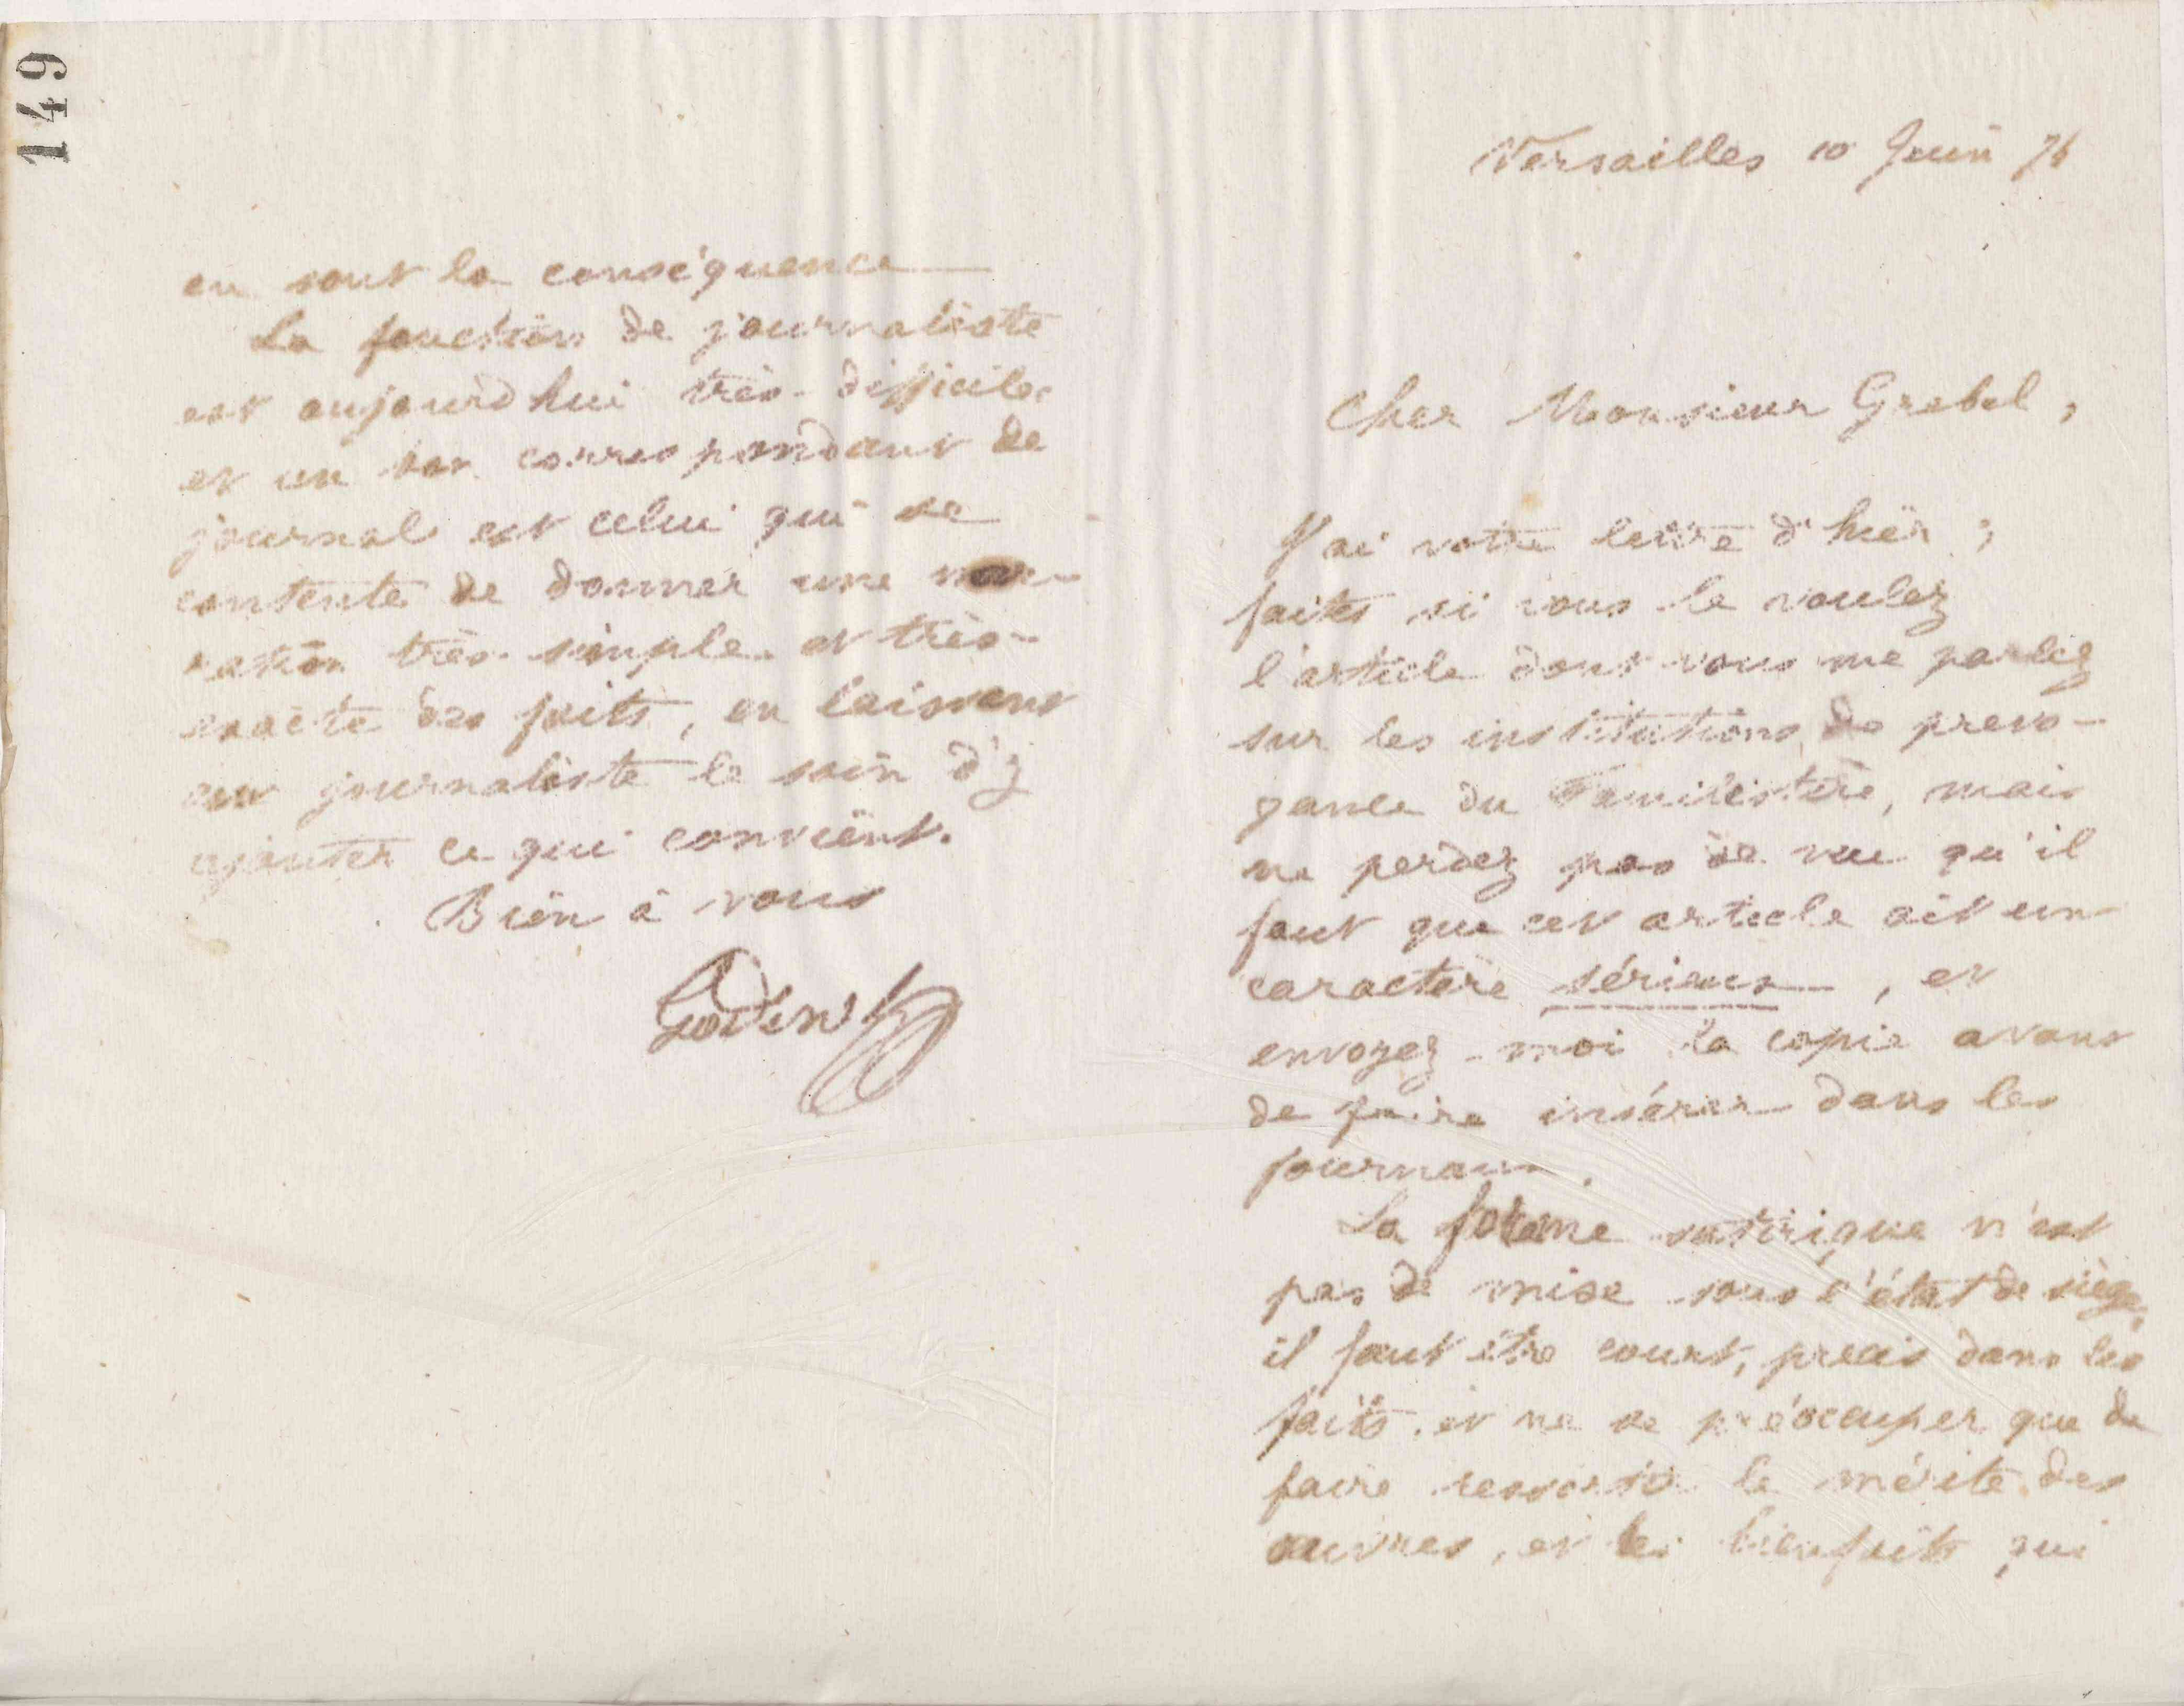 149
Versailles 10 Juin 76
Cher Monsieur Grebel,
J'ai votre lettre d'hier ;
faites si vous le voulez
l'article dont vous me parlez
sur les institutions de prevo-
yance du Familistère, mais
ne perdez pas de vue qu'il
faut que cet article ait un
caractère sérieux , et
envoyez-moi la copie avant
de faire insérer dans les
journaux.
La forme satirique n'est
pas de mise sous l'état de siège,
il faut être court, précis dans les
faits, et ne se préoccuper que de
faire ressortir le mérite des
œuvres, et les bienfaits qui
en sont la conséquence
La fonction de journaliste
est aujourd'hui très-difficile,
et un bon correspondant de
journal est celui qui se
contente de donner une nar-
ration très-simple et très-
exacte des faits, en laissant
au journaliste le soin d'y
ajouter ce qui convient.
Bien à vous
Godin